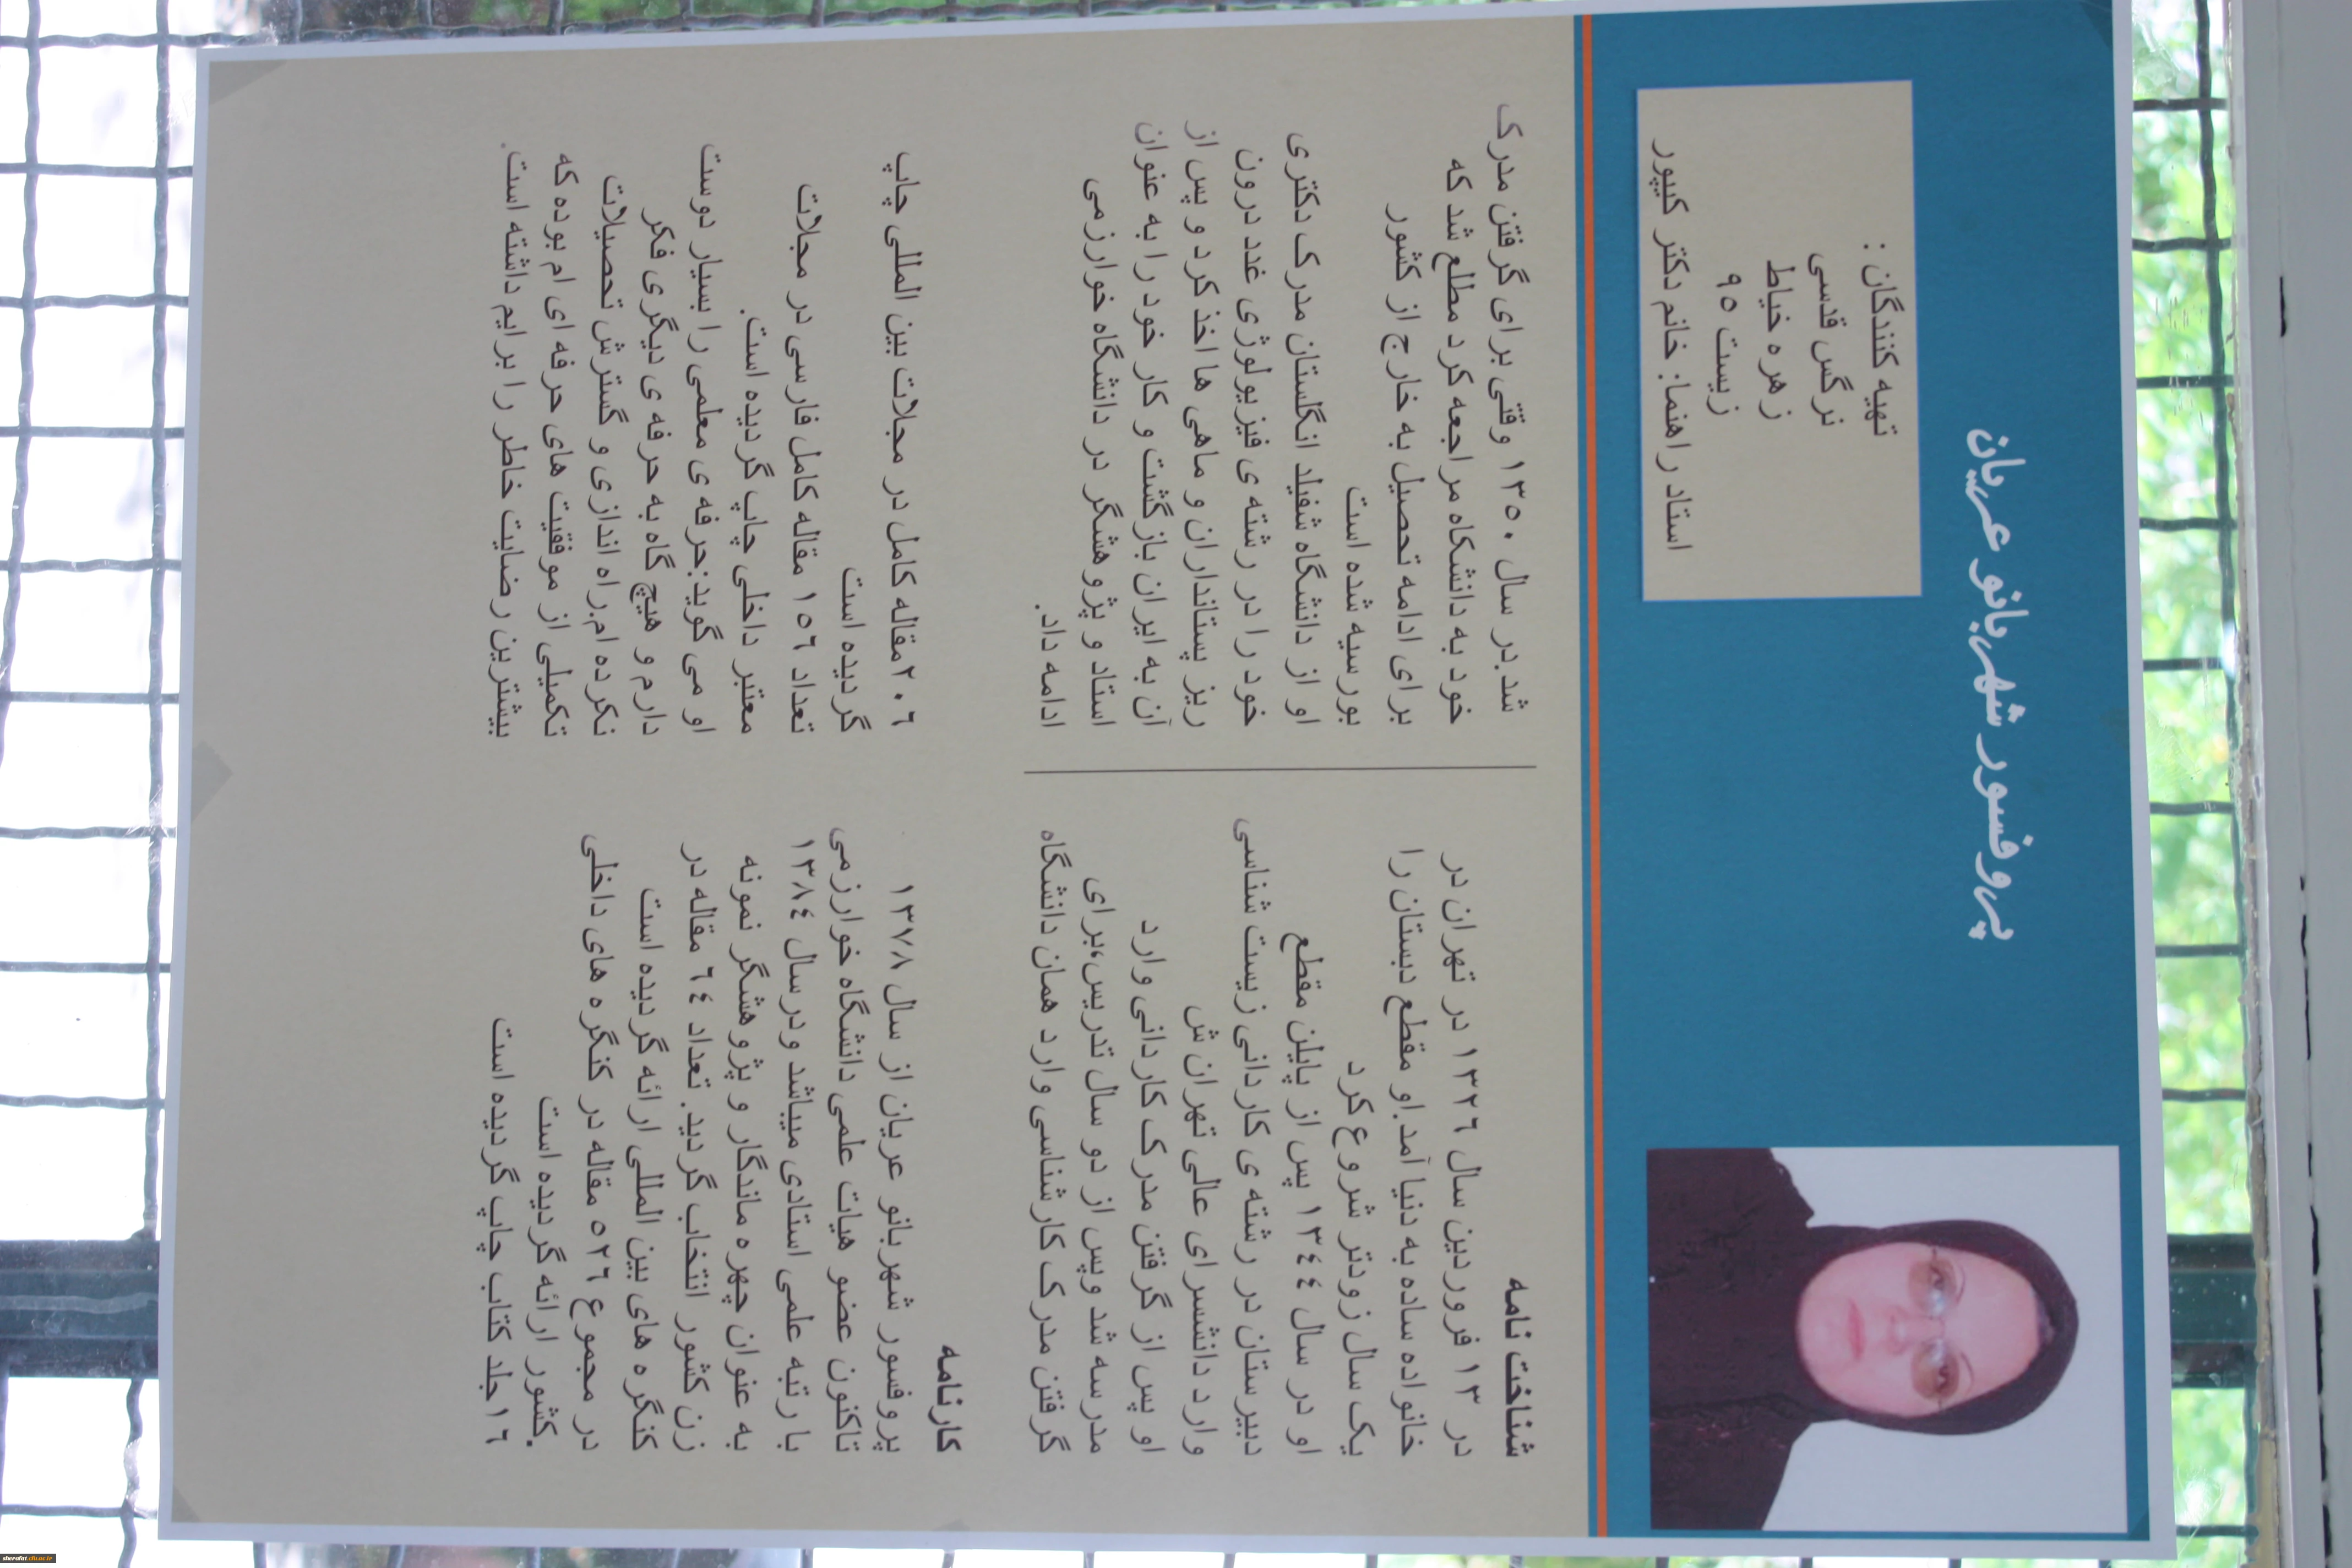 پروفسور شهربانو عریان
تهیه کنندگان :
نرگس قدسی
زهره خیاط
زیست ۹۵
استاد راهنما: خانم دکتر کیپور
شناخت نامه
در ۱۳ فروردین سال ۱۳۲۶ در تهران در
خانواده ساده به دنیا آمد.او مقطع دبستان را
یک سال زودتر شروع کرد
او در سال ۱۳۴۴ پس از پایلن مقطع
دبیرستان در رشته ی کاردانی زیست شناسی
وارد دانشسرای عالی تهران ش
او پس از گرفتن مدرک کاردانی وارد
مدرسه شد وپس از دو سال تدریس،برای
گرفتن مدرک کارشناسی وارد همان دانشگاه
شد.در سال ۱۳۵۰ وقتی برای گرفتن مدرک
خود به دانشکاه مراجعه کرد مطلع شد که
برای ادامه تحصیل به خارج از کشور
بورسیه شده است
او از دانشگاه شفیلد انگلستان مدرک دکتری
خود را در رشته ی فیزیولوژی غدد درون
ریز پستانداران و ماهی ها اخذ کرد و پس از
آن به ایران بازگشت و کار خود را به عنوان
استاد و پژوهشگر در دانشگاه خوارزمی
ادامه داد.
کارنامه
پروفسور شهربانو عریان از سال ۱۳۷۸
تاکنون عضو هیات علمی دانشگاه خوارزمی
با رتبه علمی استادی میباشد ودرسال ۱۳۸۴
به عنوان چهره ماندگار و پژوهشگر نمونه
زن کشور انتخاب گردید. تعداد ۶۴ مقاله در
کنگره های بین المللی ارائه گردیده است
در مجموع ۵۲۶ مقاله در کنگره های داخلی
کشور ارائه گردیده است.
۱۶جلد کتاب چاپ گردیده است
۲۰۶مقاله کامل در مجلات بین المللی چاپ
گردیده است
تعداد ۱۵۶ مقاله کامل فارسی در مجلات
معتبر داخلی چاپ گردیده است.
او می گوید:حرفه ی معلمی را بسیار دوست
دارم و هیچ گاه به حرفه ی دیگری فکر
نکرده ام.راه اندازی و گسترش تحصیلات
تکمیلی از موفقیت های حرفه ای ام بوده که
بیشترین رضایت خاطر را برایم داشته است.
sherafat.cfu.ac.ir